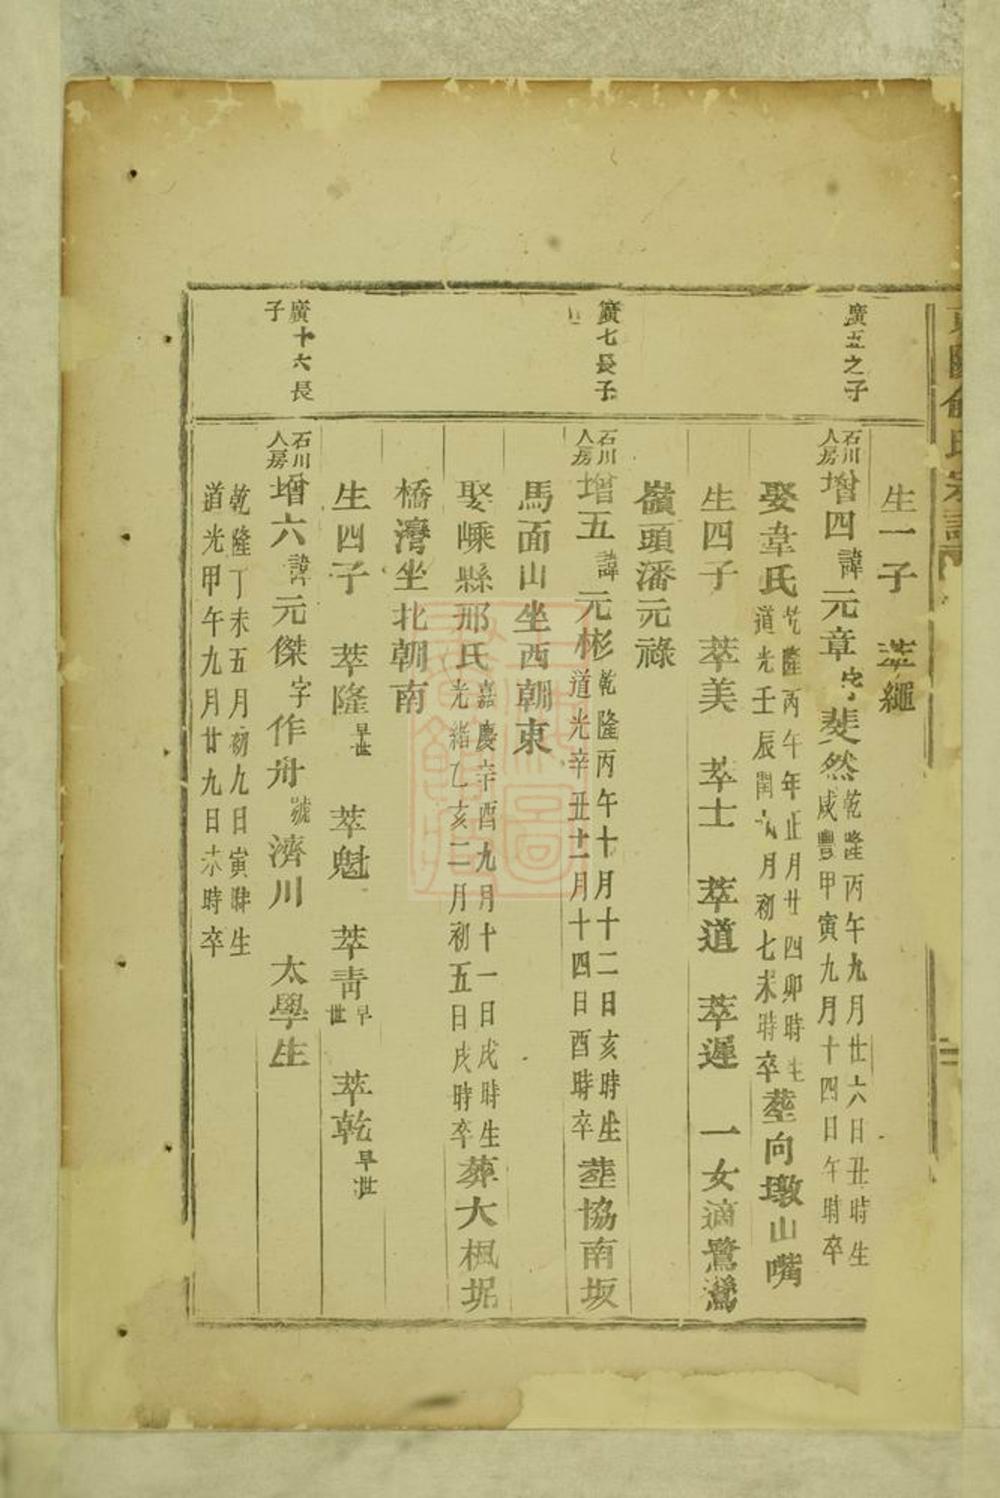 氏宗譜
生一子 萃繩
廣五之子
石川人房增四諱元章字斐然乾隆丙午九月廿六日丑時生咸豐甲寅九月十四日午時卒
娶韋氏乾隆丙午年正月廿四卯時生道光壬辰閏九月初七未時卒塟向墩山嘴
生四子 萃美 萃士 萃道 萃遲 一女適鷺鷥
嶺頭潘元祿
廣七長子
石川人房增五諱元彬乾隆丙午十月十二日亥時生道光辛丑十一月十四日酉時卒塟協南坂
馬面山坐西朝東
娶嵊縣邢氏嘉慶辛酉九月十一日戌時生光緒乙亥二月初五日戌時卒葬大楓坭
橋灣坐北朝南
生四子 萃隆早世 萃魁 萃青早世 萃乾早世
廣十六長子
石川人房增六諱元傑字作舟號濟川 太學生
乾隆丁未五月初九日寅時生道光甲午九月廿九日未時卒